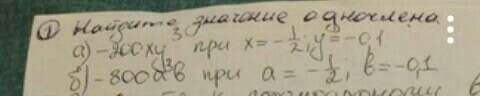 ① Найдите значение одночлена
а) -200xy³ при x=-1/2; y=-0,1
б) -800a³b при a=-1/2; b=-0,1